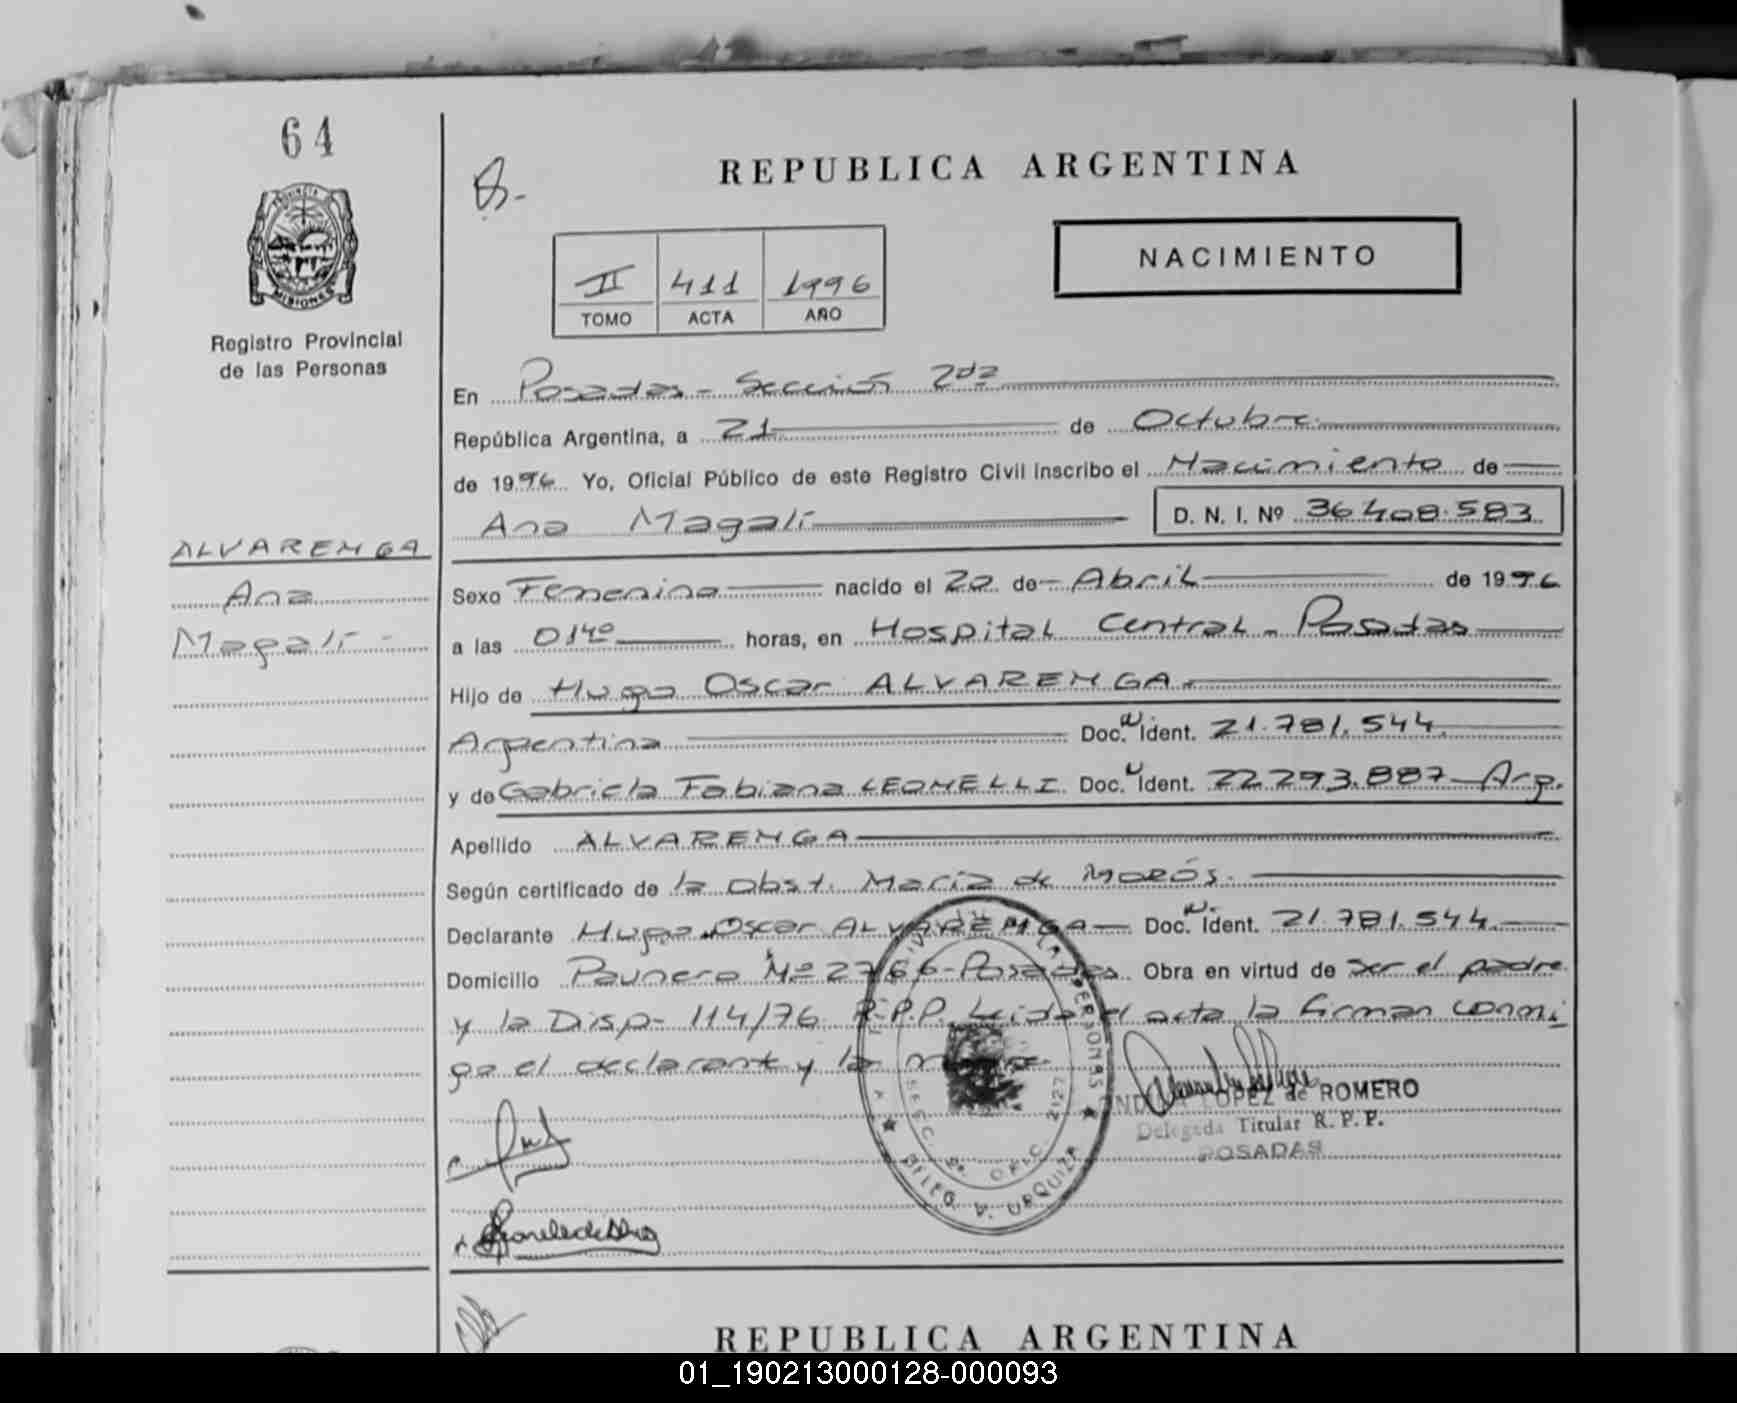 64
PROVINCIA
MISIONES
Registro Provincial
de las Personas
ALVARENGA
Ana
Magalí -
REPUBLICA ARGENTINA
NACIMIENTO
II 411 1996
TOMO ACTA AÑO
En Posadas - Sección 2da
República Argentina, a 21 de Octubre
de 1996 Yo, Oficial Público de este Registro Civil inscribo el Nacimiento de
Ana Magalí D. N. I. Nº 36.408.583
Sexo Femenino nacido el 20 de Abril de 1996
a las 0140 horas, en Hospital Central - Posadas
Hijo de Hugo Oscar ALVARENGA
Argentina Doc. Ident. 21.781.544
y de Gabriela Fabiana LEONELLI Doc. Ident. 22.293.887 - Arg.
Apellido ALVARENGA
Según certificado de la obst. María de Morós.
Declarante Hugo Oscar ALVARENGA Doc. Ident. 21.781.544
Domicilio Paunero Nº 2766 - Posadas Obra en virtud de ser el padre
y la Disp- 114/76 R.P.P. Leida el acta la firman conmi
go el declarant y la madre
LOPEZ de ROMERO
Delegada Titular R. P. P.
POSADAS
SECC. 2ª OFIC. 2127
URQUIZA
REPUBLICA ARGENTINA
01_190213000128-000093